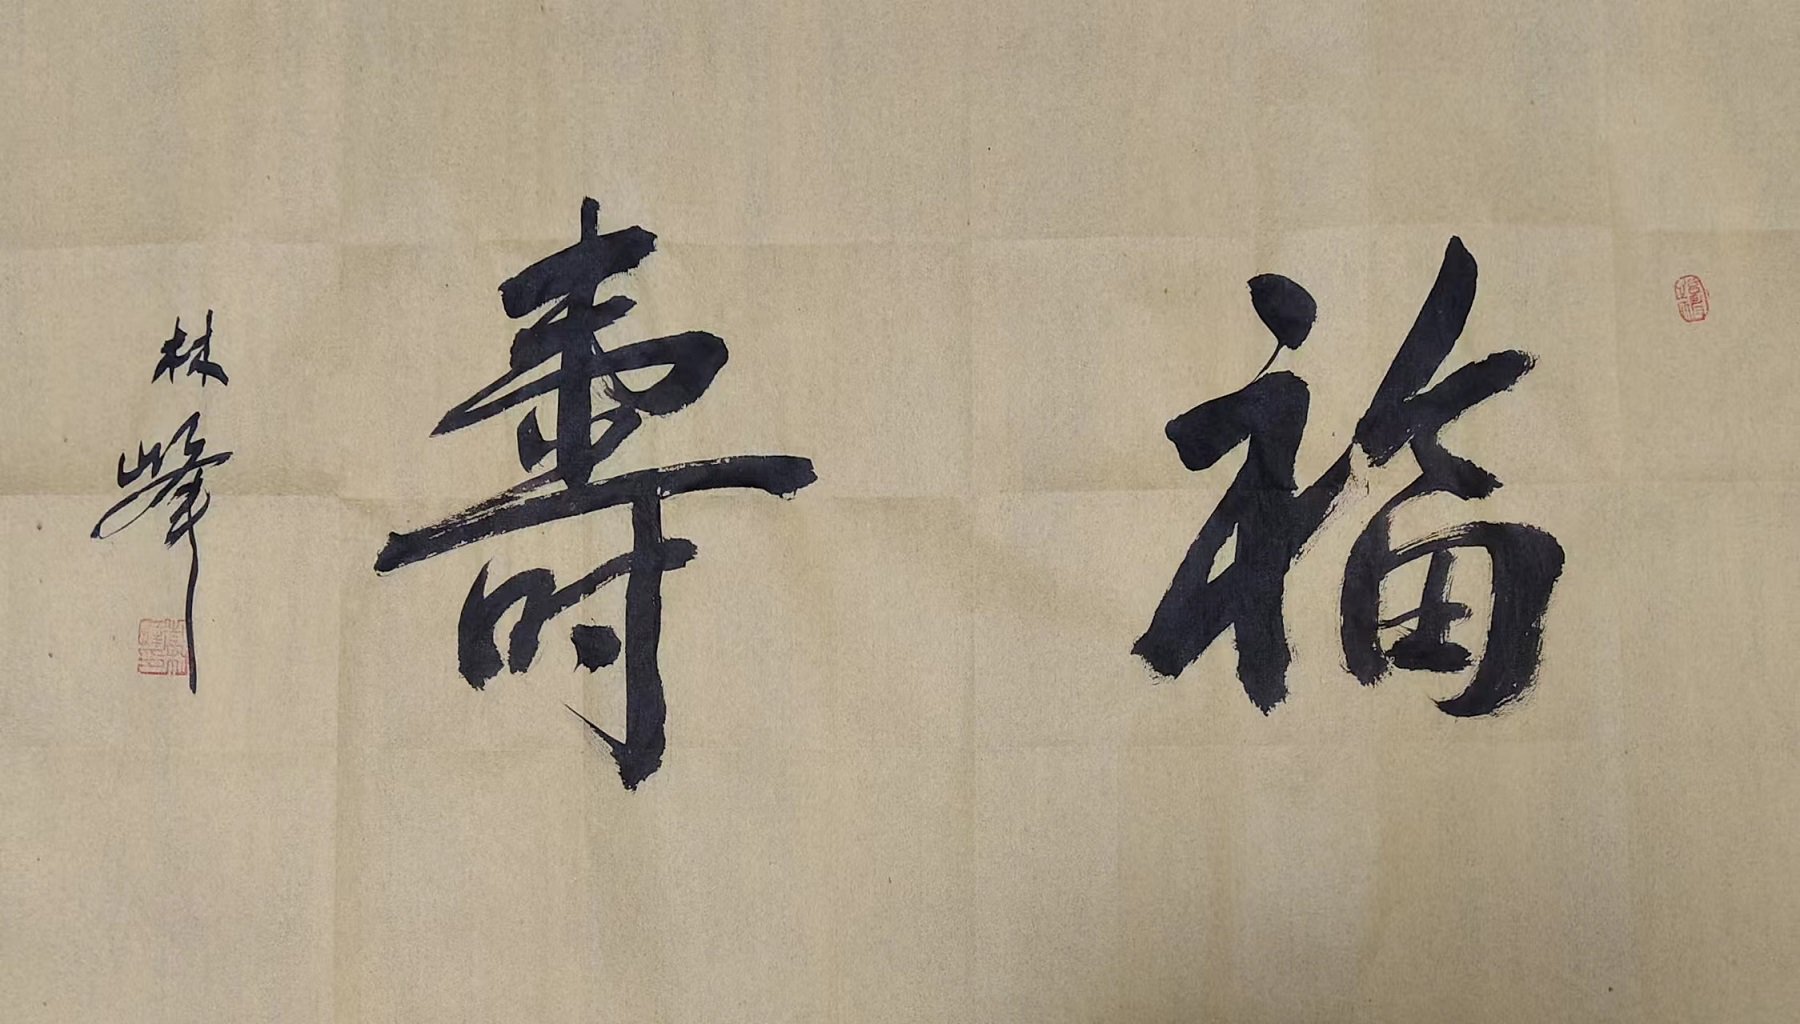 福壽
林峰